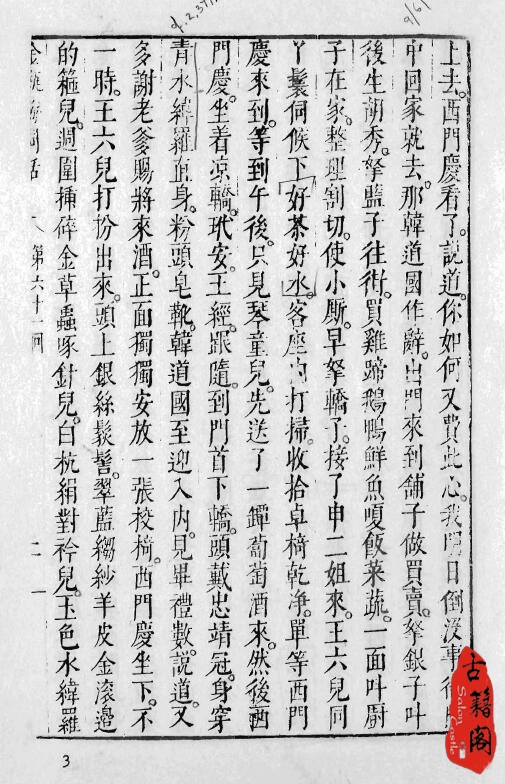 上去。西門慶看了。說道。你如何又費此心。我明日倒沒事。
中回家就去。那韓道國作辭。出門來到舖子做買賣。拏銀子叫
後生胡秀。拏籃子往街。買雞蹄鵝鴨鮮魚嗄飯菜蔬。一面叫厨
子在家。整理割切。使小厮。早拏轎子。接了申二姐來。王六兒同
丫鬟伺候下好茶好水。客座内打掃。收拾卓椅乾净。單等西門
慶來到。等到午後。只見琴童兒。先送了一罈葡萄酒來。然後西
門慶。坐着凉轎。玳安王經。跟隨。到門首下轎。頭戴忠靖冠。身穿
青水緯羅直身。粉頭皂靴。韓道國至迎入内。見畢禮數。説道。又
多謝老爹賜將來酒。正面獨獨安放一張校椅。西門慶坐下。不
一時。王六兒打扮出來。頭上銀絲䯼髻。翠藍縐紗羊皮金滚邉
的箍兒。週圍揷碎金草蟲啄針兒。白杭絹對衿兒。玉色水緯羅
金瓶梅詞話 第六十一回 二
3
古籍阁
Salon Castle